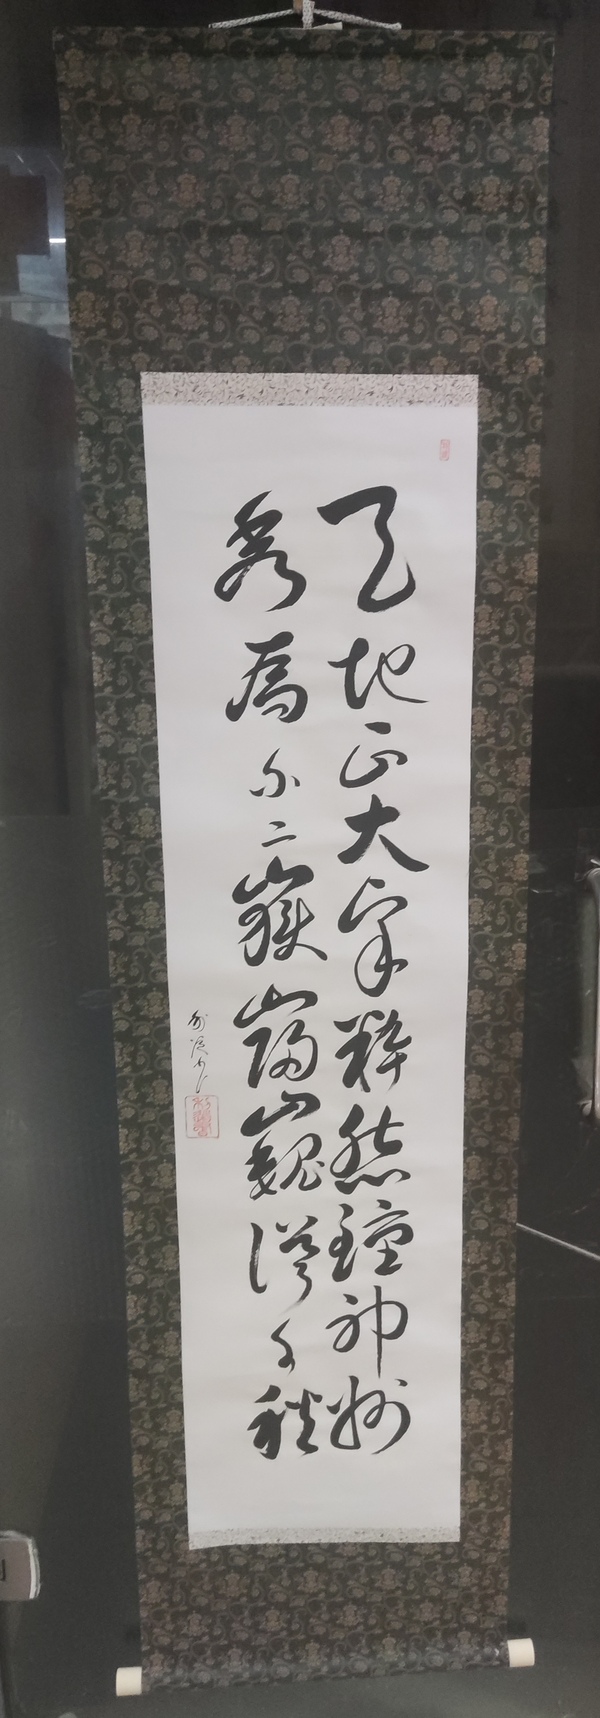 天地正大氣粋然鍾神州
秀為不二嶽巍巍聳千秋